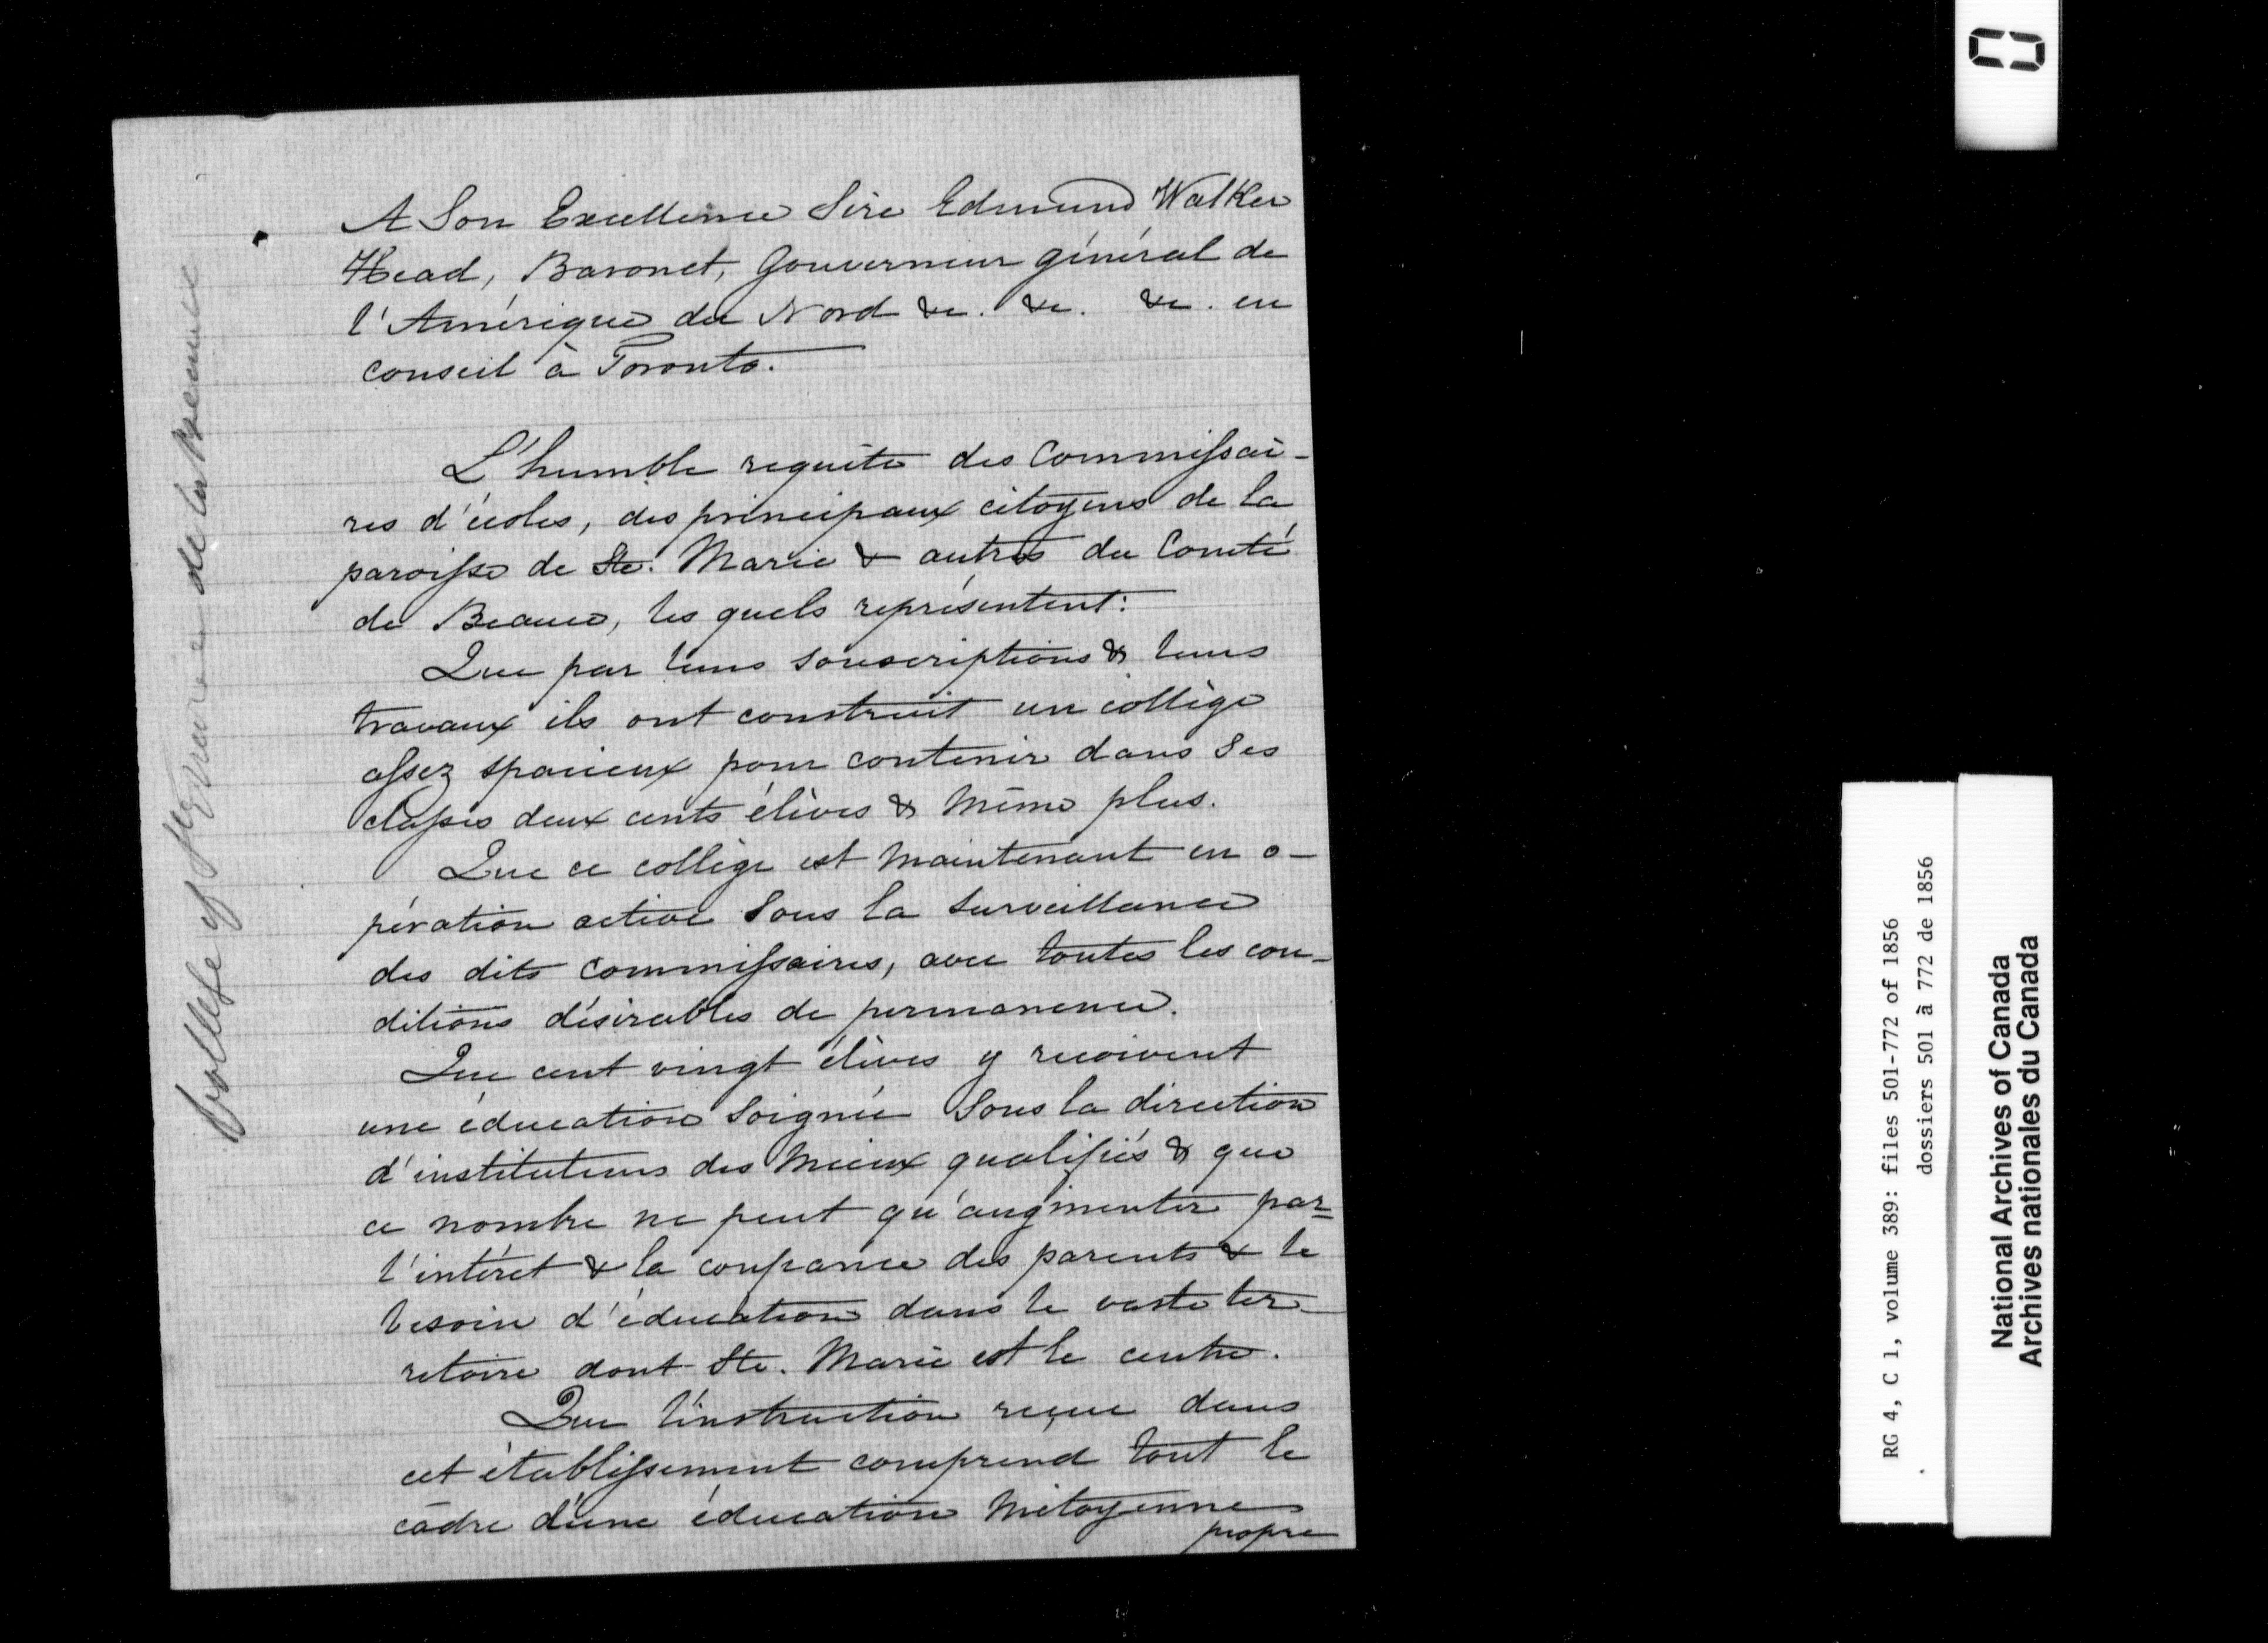 A Son Excellence Sire Edmund Walker
Head, Baronet, Gouverneur général de
l'Amérique du Nord &c. &c. &c. en
conseil à Toronto.
L'humble requête des Commissai-
res d'écoles, des principaux citoyens de la
paroisse de Ste. Marie & autres du Comté
de Beauce, les quels représentent:
Que par leurs souscriptions & leurs
travaux ils ont construit un collège
assez spacieux pour contenir dans ses
classes deux cents élèves & même plus.
Que ce collège est maintenant en o-
pération active sous la surveillance
des dits commissaires, avec toutes les con-
ditions désirables de permanence.
Que cent vingt élèves y recoivent
une éducation soignée sous la direction
d'instituteurs des mieux qualifiés & que
ce nombre ne peut qu'augmenter par
l'intéret & la confiance des parents & le
besoin d'éducation dans le vaste ter-
ritoire dont Ste. Marie est le centre.
Que l'instruction reçue dans
cet établissement comprend tout le
cadre d'une éducation mitoyenne
propre
College of Ste Marie de la Beauce
RG 4, C 1, volume 389: files 501-772 of 1856
dossiers 501 à 772 de 1856
National Archives of Canada
Archives nationales du Canada